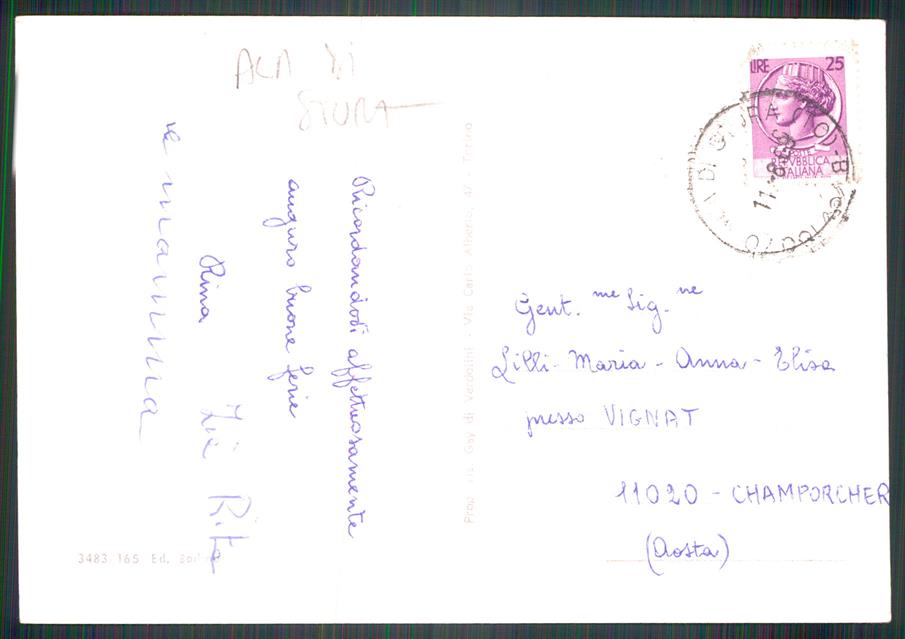 ALA DI
STURA
Ricordandoti affettuosamente
auguro buone ferie
Rina
Zia Rita
e mamma
3483 165 Ed.
Prop. ris. Gay di Verdoini - Via Carlo Alberto, 47 - Torino
LIRE 25
POSTE
REPVBBLICA
ITALIANA
10070
11
Gent.me Sig.ne
Lilli - Maria - Anna - Elisa
presso VIGNAT
11020 - CHAMPORCHER
(Aosta)